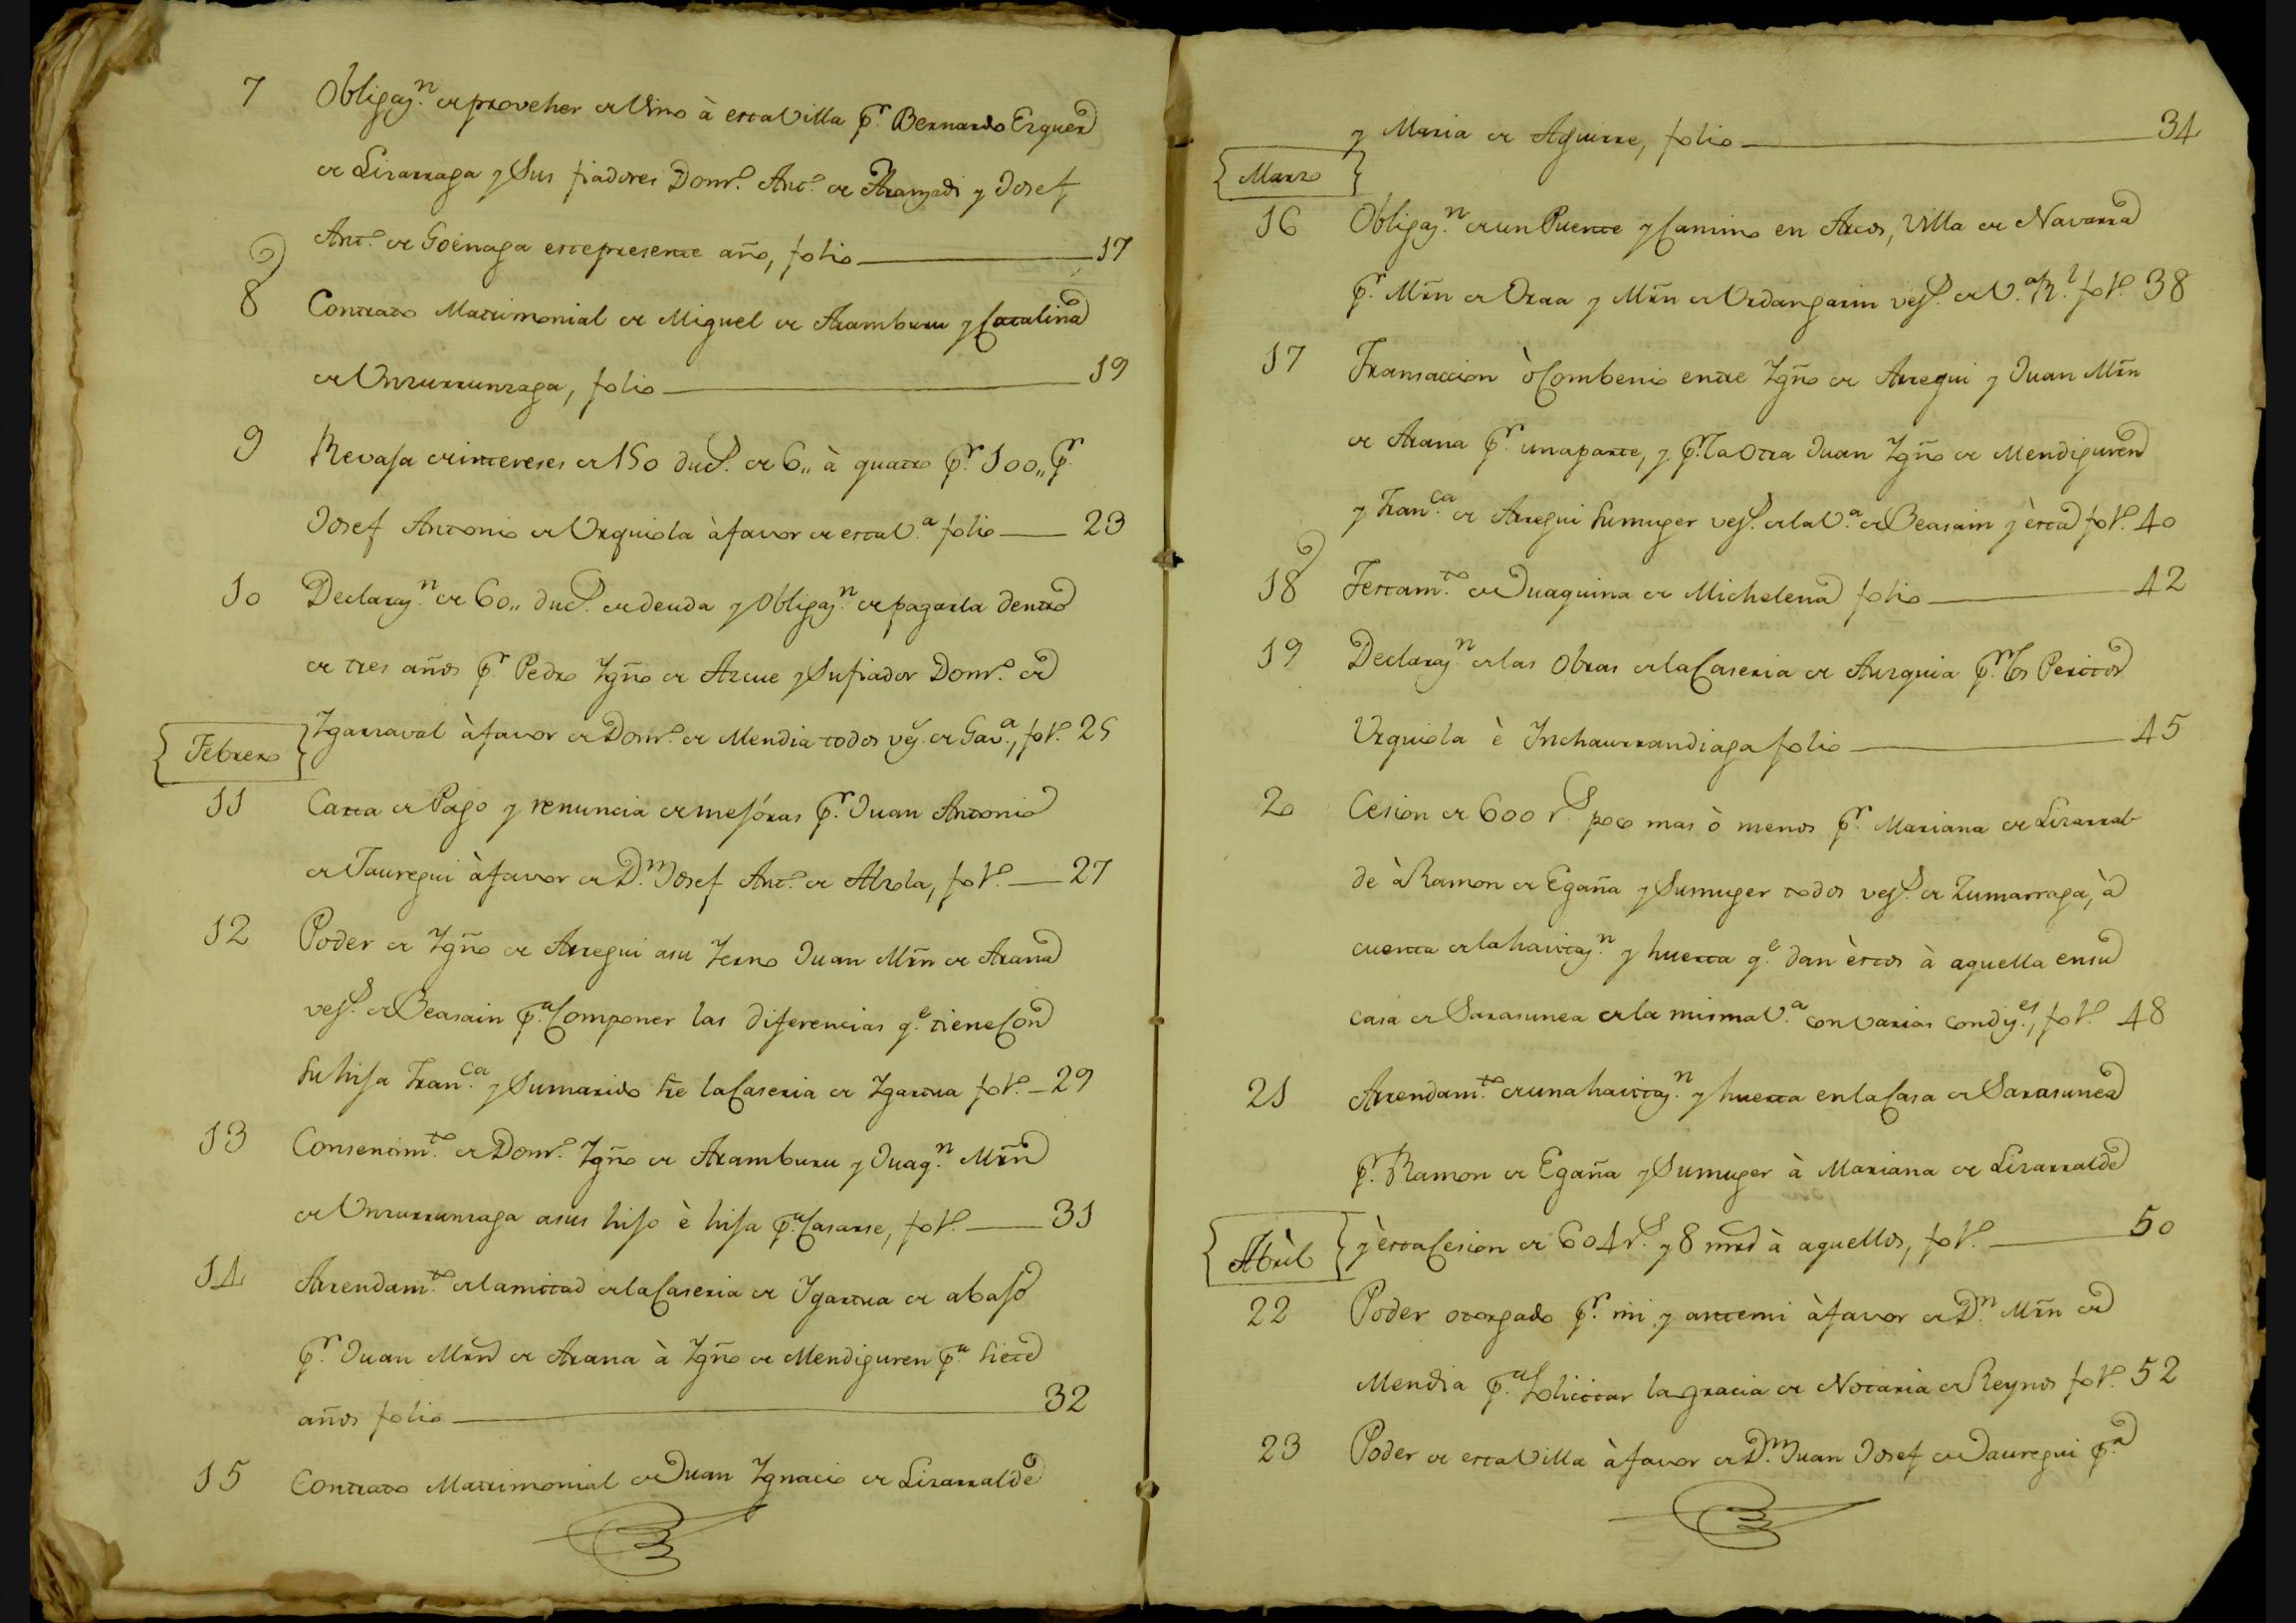 7 Obligaz.n de proveher de Vino à esta Villa p.r Bernardo Ezquer
de Lizarraga y Sus fiadores Dom.o Ant.o de Aramzadi y Josef
Ant.o de Goenaga este presente año, folio 17
8 Contrato Matrimonial de Miguel de Aramburu y Catalina
de Unzurrunzaga, folio 19
9 Revaja de intereses de 150 duc.s de 6,, à quatro p.r 100,, p.r
Josef Antonio de Urquiola à favor de esta V.a folio 23
10 Declaraz.n de 60,, duc.s de deuda y Obligaz.n de pagarla dentro
de tres años p.r Pedro Ygño de Azcue y Su fiador Dom.o de
Ygarraval à favor de Dom.o de Mendia todos vez.s de Gav.a, fol.o 25
{Febrero}
11 Carta de Pago y renuncia de mejóras p.r Juan Antonio
de Jauregui à favor de D.n Josef Ant.o de Alzola, fol.o 27
12 Poder de Ygño de Arregui a su Yerno Juan Mrn de Arana
vez.s de Beasain p.a Componer las diferencias q.e tiene Con
Su hija Fran.ca y Su marido sre la Caseria de Ygartua fol.o 29
13 Consentim.to de Dom.o Ygño de Aramburu y Juaq.n Mrn
de Unzurrunzaga a sus hijo è hija p.a Casarse, fol.o 31
14 Arrendam.to de la mitad de la Caseria de Ygartua de abajo
p.r Juan Mrn de Arana à Ygño de Mendiguren p.a siete
años folio 32
15 Contrato Matrimonial de Juan Ygnacio de Lizarralde
y Maria de Aguirre, folio 34
{Marzo}
16 Obligaz.n de un Puente y Camino en Arcos, Villa de Navarra
p.r Mrn de Oraa y Mrn de Urdangarin vez.s de V.a R.l fol.o 38
17 Transaccion ò Combenio entre Ygño de Arregui y Juan Mrn
de Arana p.r una parte, y p.r la Otra Juan Ygño de Mendiguren
y Fran.ca de Arregui Su muger vez.s de la V.a de Beasain y èsta fol.o 40
18 Testam.to de Juaquina de Michelena folio 42
19 Declaraz.n de las Obras de la Caseria de Auzquia p.r los Peritos
Urquiola è Inchaurrandiaga folio 45
20 Cesion de 600 r.s poco mas ò menos p.r Mariana de Lizarral
de à Ramon de Egaña y Su muger todos vez.s de Zumarraga, à
cuenta de la havitaz.n y huerta q.e dan èstos à aquella en su
casa de Sarasunea de la misma V.a con varias condiz.es, fol.o 48
21 Arrendam.to de una havitaz.n y huerta en la Casa de Sarasunea
p.r Ramon de Egaña y Su muger à Mariana de Lizarralde
y èsta Cesion de 604 r.s y 8 mrs à aquellos, fol.o 50
{Abril}
22 Poder otorgado p.r mi y ante mi à favor de D.n Mrn de
Mendia p.a Solicitar la gracia de Notaria de Reynos fol.o 52
23 Poder de esta Villa à favor de D.n Juan Josef de Jauregui p.a